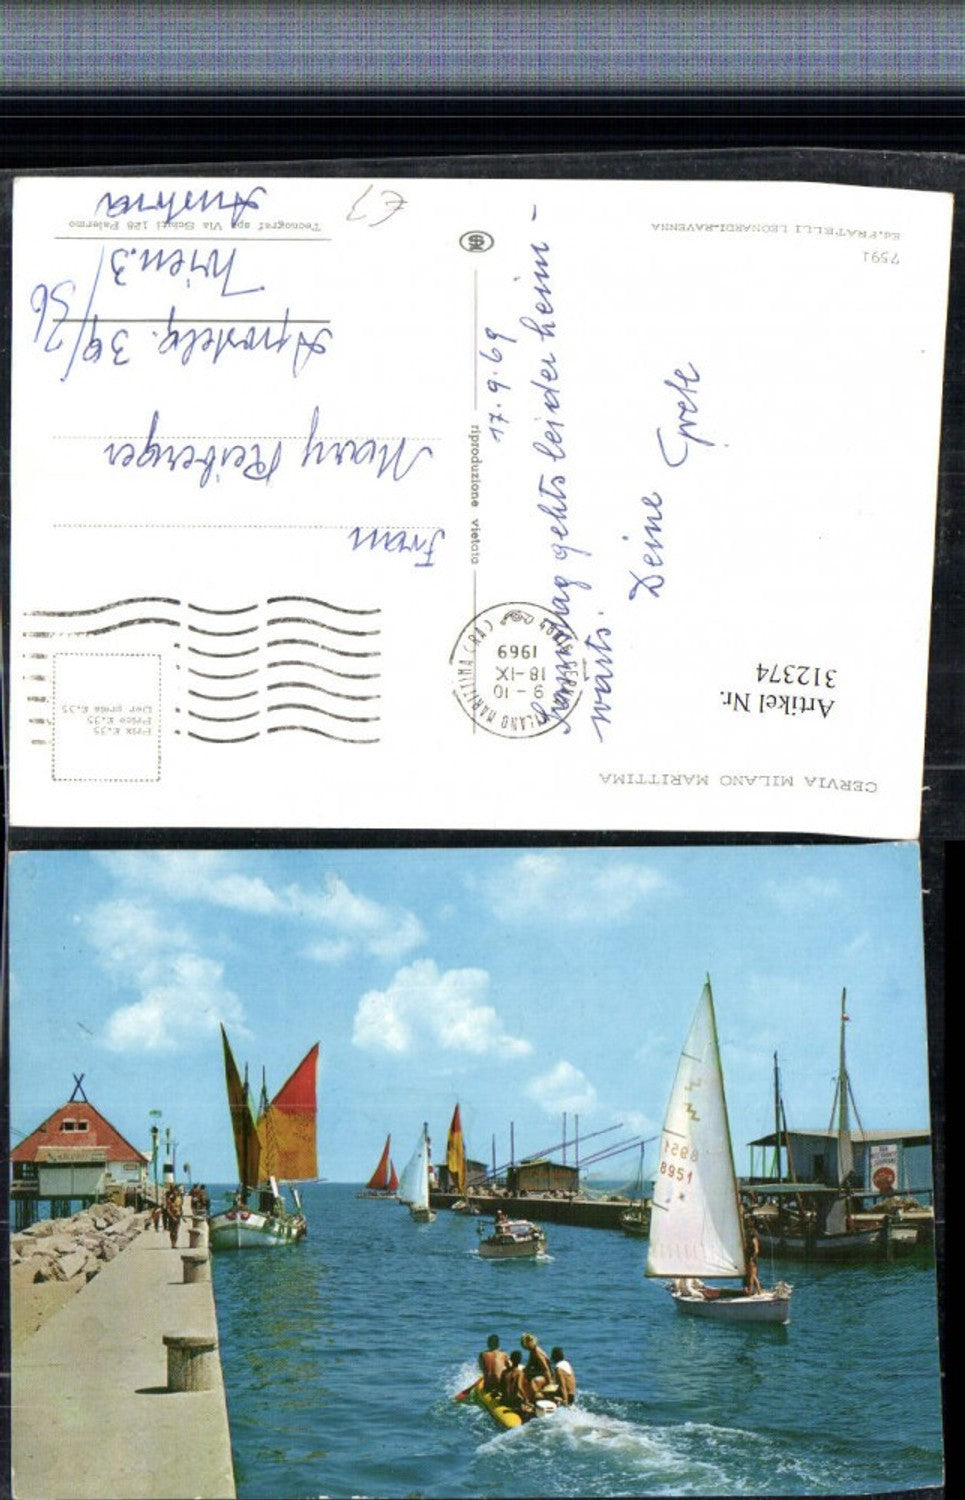 CERVIA MILANO MARITTIMA
Artikel Nr.
312374
17.9.69
Samstag gehts leider heim-
wärts.
Deine
Grete
7591
Ed. FRATELLI LEONARDI-RAVENNA
riproduzione vietata
MILANO MARITTIMA (RA)
9-10
18-IX
1969
Prix £.35
Price £.35
Der preis £.35
Frau
Mary Reiberger
Apostelg. 39/
36
Wien 3/
Austria
Tecnograf spa Via Sciuti 128 Palermo
€7
8951
8951